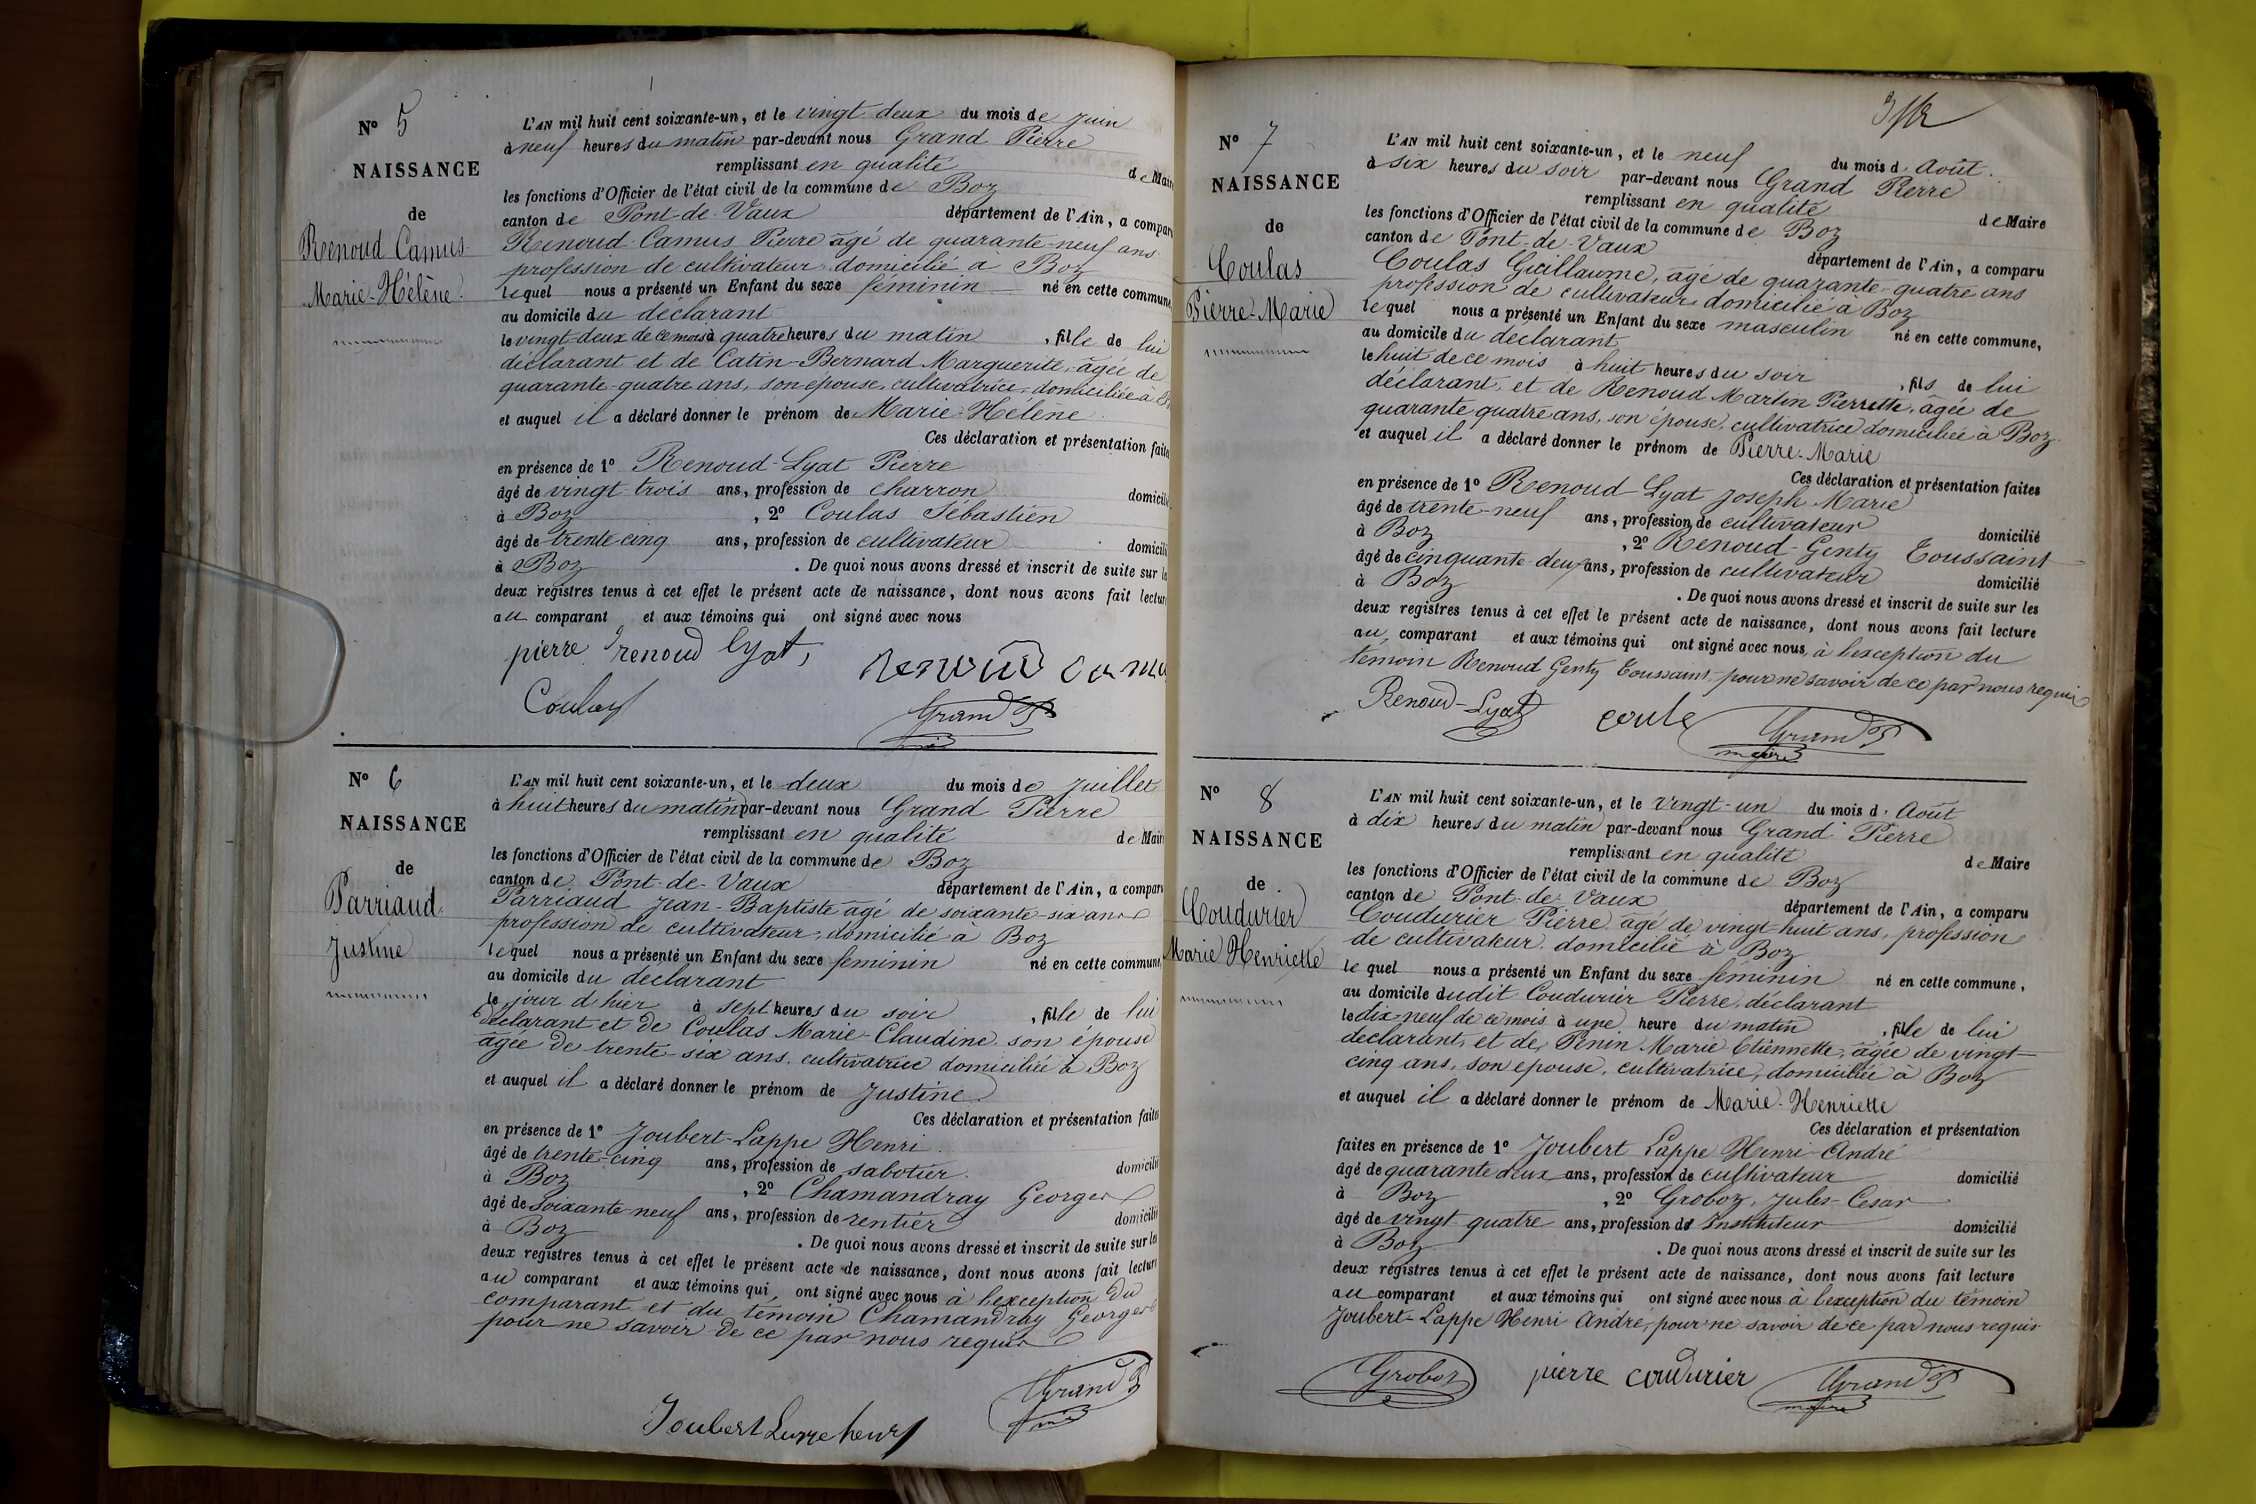 N° 5
NAISSANCE
de
Renoud Camus
Marie-Hélène.
L'AN mil huit cent soixante-un, et le vingt deux du mois de juin
à neuf heures du matin par-devant nous Grand Pierre
remplissant en qualité de Maire
les fonctions d'Officier de l'état civil de la commune de Boz
canton de Pont-de-Vaux département de l'Ain, a comparu
Renoud-Camus Pierre âgé de quarante-neuf ans
profession de cultivateur domicilié à Boz
lequel nous a présenté un Enfant du sexe féminin né en cette commune
au domicile du déclarant
le vingt-deux de ce mois à quatre heures du matin, fille de lui
déclarant et de Catin-Bernard Marguerite, âgée de
quarante-quatre ans, son épouse, cultivatrice, domiciliée à
et auquel il a déclaré donner le prénom de Marie-Hélène.
Ces déclaration et présentation faites
en présence de 1° Renoud-Lyat Pierre
âgé de vingt-trois ans, profession de charron domicilié
à Boz, 2° Coulas Sébastien
âgé de trente cinq ans, profession de cultivateur domicilié
à Boz. De quoi nous avons dressé et inscrit de suite sur le
deux registres tenus à cet effet le présent acte de naissance, dont nous avons fait lecture
au comparant et aux témoins qui ont signé avec nous
pierre renoud lyat,
renoud camu
Coulas
Grand P
N° 6
NAISSANCE
de
Parriaud
Justine
L'AN mil huit cent soixante-un, et le deux du mois de Juillet
à huit heures du matin par-devant nous Grand Pierre
remplissant en qualité de Maire
les fonctions d'Officier de l'état civil de la commune de Boz
canton de Pont-de-Vaux département de l'Ain, a comparu
Parriaud Jean-Baptiste âgé de soixante-six ans
profession de cultivateur, domicilié à Boz
lequel nous a présenté un Enfant du sexe féminin né en cette commune
au domicile du déclarant
le jour d'hier à sept heures du soir, fille de lui
déclarant et de Coulas Marie-Claudine son épouse
âgée de trente-six ans, cultivatrice domiciliée à Boz
et auquel il a déclaré donner le prénom de Justine.
Ces déclaration et présentation faites
en présence de 1° Joubert-Lappe Henri
âgé de trente-cinq ans, profession de sabotier domicilié
à Boz, 2° Chamandray Georges
âgé de soixante-neuf ans, profession de rentier domicilié
à Boz. De quoi nous avons dressé et inscrit de suite sur les
deux registres tenus à cet effet le présent acte de naissance, dont nous avons fait lecture
au comparant et aux témoins qui, ont signé avec nous à l'exception du
comparant et du témoin Chamandray Georges
pour ne savoir de ce par nous requis
Grand P
Joubert Lappe henri
N° 7
NAISSANCE
de
Coulas
Pierre-Marie
L'AN mil huit cent soixante-un, et le neuf du mois d'Août.
à six heures du soir par-devant nous Grand Pierre
remplissant en qualité de Maire
les fonctions d'Officier de l'état civil de la commune de Boz
canton de Pont-de-Vaux département de l'Ain, a comparu
Coulas Guillaume, âgé de quarante-quatre ans
profession de cultivateur domicilié à Boz
lequel nous a présenté un Enfant du sexe masculin né en cette commune,
au domicile du déclarant
le huit de ce mois à huit heures du soir, fils de lui
déclarant, et de Renoud Martin Pierrette, âgée de
quarante quatre ans, son épouse, cultivatrice domiciliée à Boz
et auquel il a déclaré donner le prénom de Pierre-Marie
Ces déclaration et présentation faites
en présence de 1° Renoud-Lyat Joseph Marie
âgé de trente-neuf ans, profession de cultivateur domicilié
à Boz, 2° Renoud-Genty Toussaint
âgé de cinquante-deux ans, profession de cultivateur domicilié
à Boz. De quoi nous avons dressé et inscrit de suite sur les
deux registres tenus à cet effet le présent acte de naissance, dont nous avons fait lecture
au comparant et aux témoins qui ont signé avec nous, à l'exception du
témoin Renoud Genty Toussaint, pour ne savoir de ce par nous requis
Renoud-Lyat
coula
Grand P
maire
N° 8
NAISSANCE
de
Coudurier
Marie Henriette
L'AN mil huit cent soixante-un, et le vingt-un du mois d'Août
à dix heures du matin par-devant nous Grand Pierre
remplissant en qualité de Maire
les fonctions d'Officier de l'état civil de la commune de Boz
canton de Pont-de-Vaux département de l'Ain, a comparu
Coudurier Pierre âgé de vingt-huit ans, profession
de cultivateur, domicilié à Boz
lequel nous a présenté un Enfant du sexe féminin né en cette commune,
au domicile dudit Coudurier Pierre, déclarant
le dix-neuf de ce mois à une heure du matin, fille de lui
déclarant, et de Penin Marie Etiennette, âgée de vingt-
cinq ans, son épouse, cultivatrice, domiciliée à Boz
et auquel il a déclaré donner le prénom de Marie-Henriette
Ces déclaration et présentation
faites en présence de 1° Joubert Lappe Henri-André
âgé de quarante deux ans, profession de cultivateur domicilié
à Boz, 2° Groboz, Jules-Cesar
âgé de vingt quatre ans, profession d'Instituteur domicilié
à Boz. De quoi nous avons dressé et inscrit de suite sur les
deux registres tenus à cet effet le présent acte de naissance, dont nous avons fait lecture
au comparant et aux témoins qui ont signé avec nous à l'exception du témoin
Joubert-Lappe Henri André, pour ne savoir de ce par nous requis
Groboz
pierre coudurier
Grand P
maire